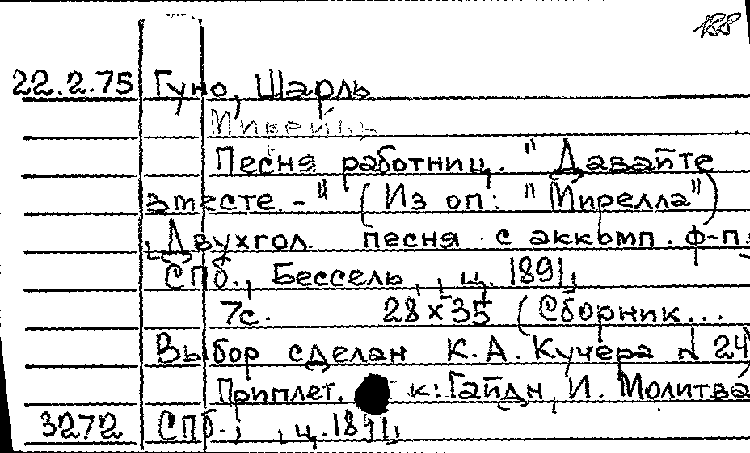 188
22.2.75 Гуно, Шарль
Мирейль
Песня работниц. "Давайте
вместе -" (Из оп: "Мирелла")
Двухгол. песня с аккомп. ф-п.
СПб., Бессель, ц. 1891,
7с. 28 x 35 (Сборник...
Выбор сделан К.А. Кучера № 24)
Приплет. к: Гайдн, И. Молитва
3272 СПб., ц. 1891,